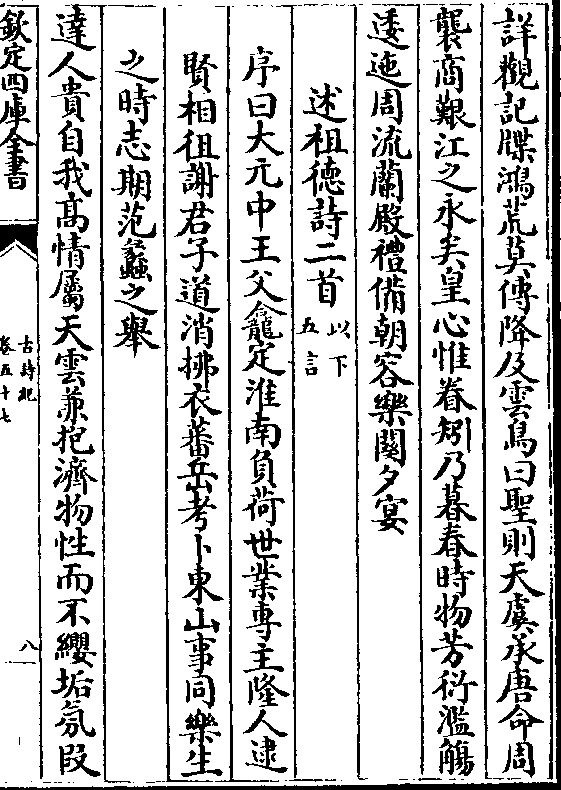 詳觀記牒鴻荒莫傳降及雲鳥曰聖則天虞承唐命周
襲商艱江之永矣皇心惟眷矧乃暮春時物芳衍濫觴
逶迤周流蘭殿禮備朝容樂闋夕宴
述祖德詩二首以下五言
序曰大元中王父龕定淮南負荷世業專主隆人逮
賢相徂謝君子道消拂衣蕃岳考卜東山事同樂生
之時志期范蠡之舉
達人貴自我高情屬天雲兼抱濟物性而不纓垢氛段
欽定四庫全書
古詩紀
卷五十七
八